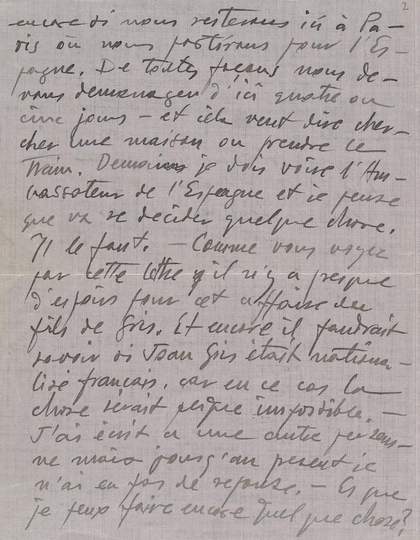 2
encore si nous resterons ici à Pa-
ris où nous partirons pour l'Es-
pagne. De toutes façons nous de-
vons demenager d'ici quatre ou
cinc jours – et cela veut dire cher-
cher une maison ou prendre le
train. Demain je dois voire l'Am-
bassateur de l'Espagne et je pense
que va se décider quelque chose.
Il le faut. – Comme vous voyez
par cette lettre il n'y a presque
d'espoirs pour cet affaire du
fils de Gris. Et encore il faudrait
savoir si Joan Gris était nationa-
lisé français, car en ce cas la
chose serait presque impossible. –
J'ai écrit a une autre person-
ne mais jusqu'au present je
n'ai eu pas de reponse. – Es que
je peux faire encore quelque chose?